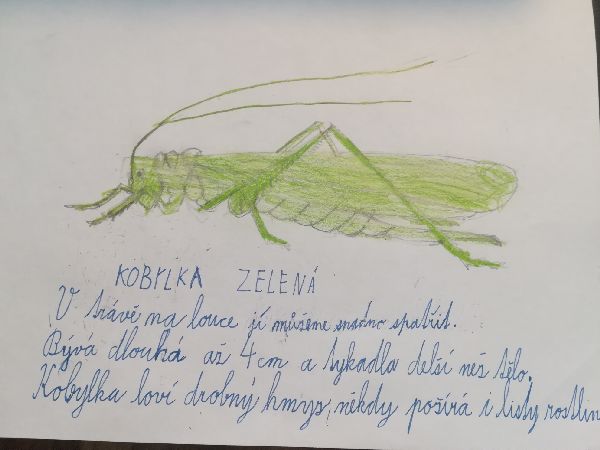 KOBYLKA ZELENÁ
V trávě na louce jí můžeme snadno spatřit.
Bývá dlouhá až 4 cm a tykadla delší než tělo.
Kobylka loví drobný hmyz, někdy požírá i listy rostlin